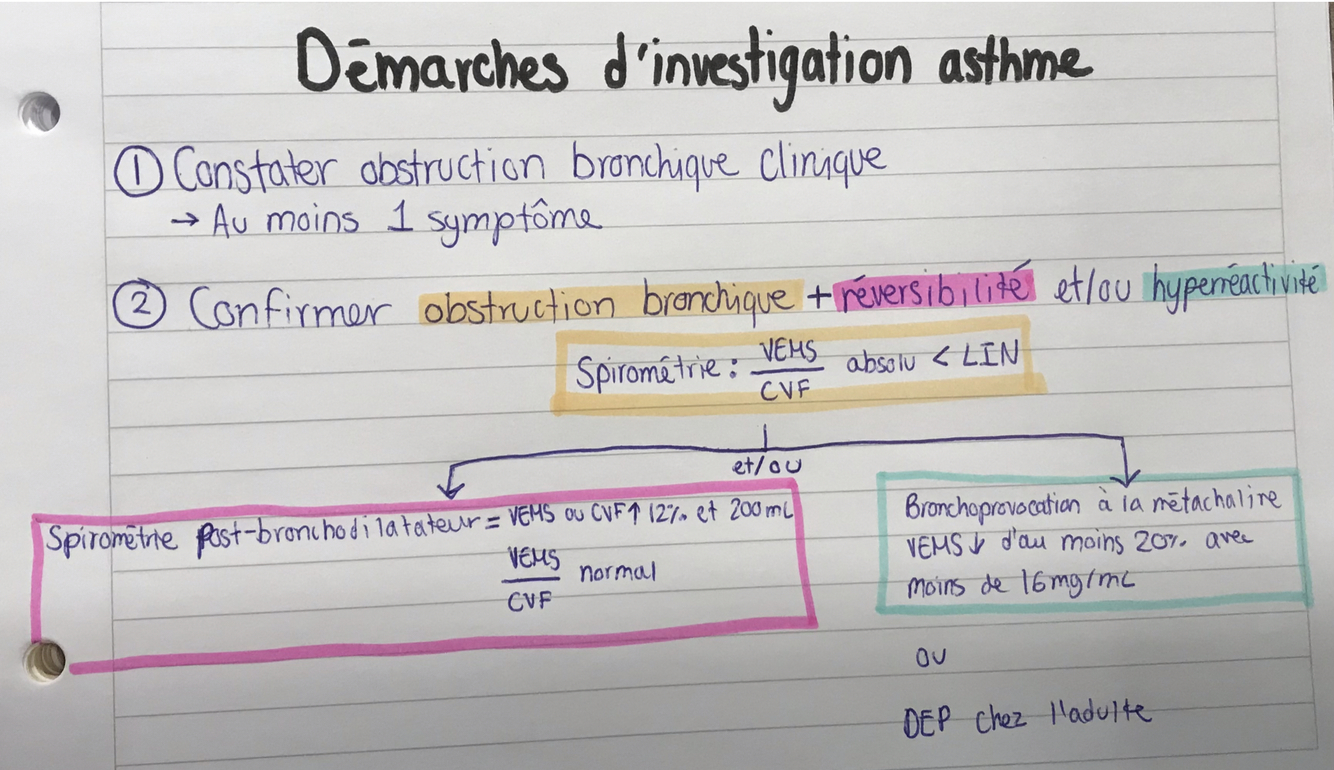 Démarches d'investigation asthme
① Constater obstruction bronchique clinique
→ Au moins 1 symptôme
② Confirmer obstruction bronchique + réversibilité et/ou hyperréactivité
Spirométrie : VEMS/CVF absolu < LIN
et/ou
Spirométrie post-bronchodilatateur = VEMS ou CVF ↑ 12% et 200mL
VEMS/CVF normal
Bronchoprovocation à la métachaline
VEMS ↓ d'au moins 20% avec
moins de 16mg/mL
ou
DEP chez l'adulte